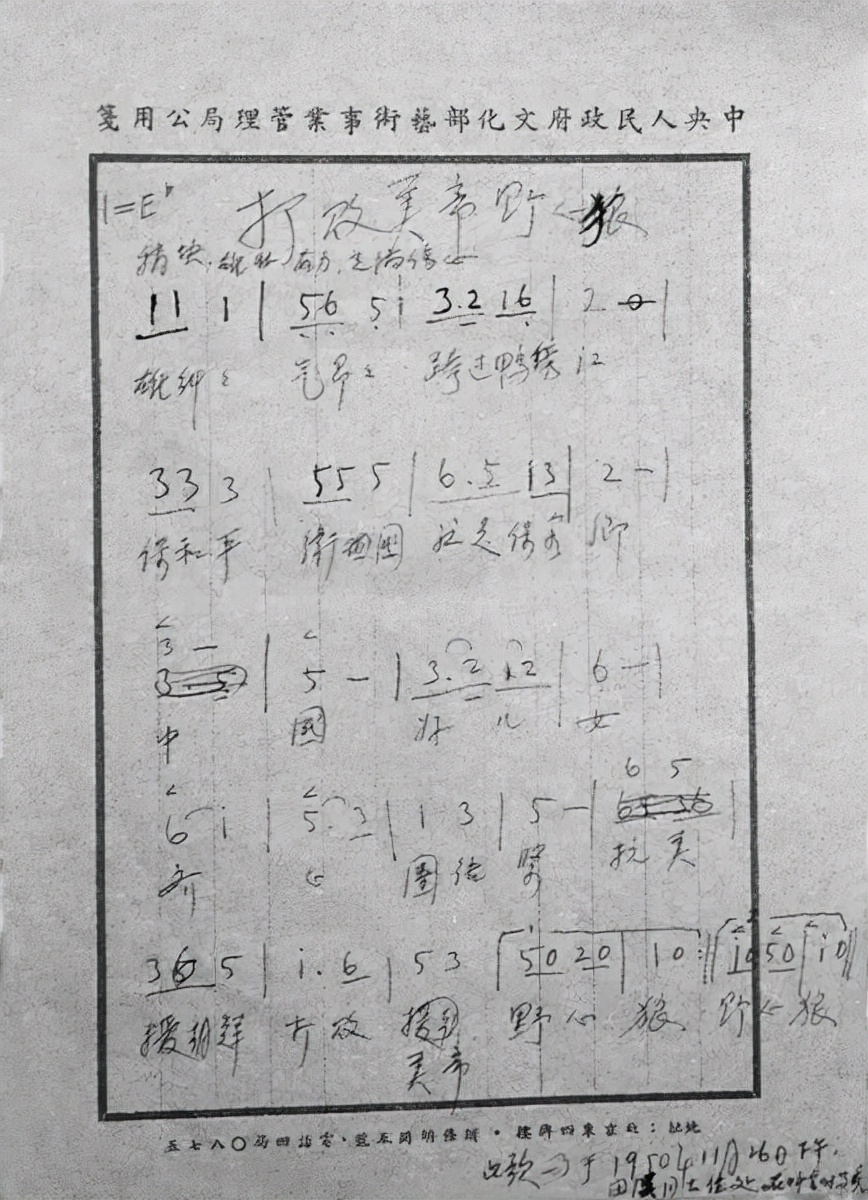 中央人民政府文化部藝術事業管理局公用箋
1=E♭ 打敗美帝野心狼
精快.雄壯,有力,充滿信心
11 1 | 56 5i | 3.2 16 | 2 0 |
雄糾々 氣昂々 跨过鴨綠江
33 3 | 55 5 | 6.5 13 | 2 - |
保和平 衛祖國 就是保家鄉
3 - | 5 - | 3.2 12 | 6 - |
中 國 好 儿 女
6 i | 5.3 | 1 3 | 5 - | 6 5 |
齐 心 團 结 緊 抗 美
36 5 | i.6 | 53 | 50 20 | 10 :|| i0 50 | i0 ||
援朝鮮 打敗 美帝 野心 狼 野心狼
此歌写于1950年11月26日下午.